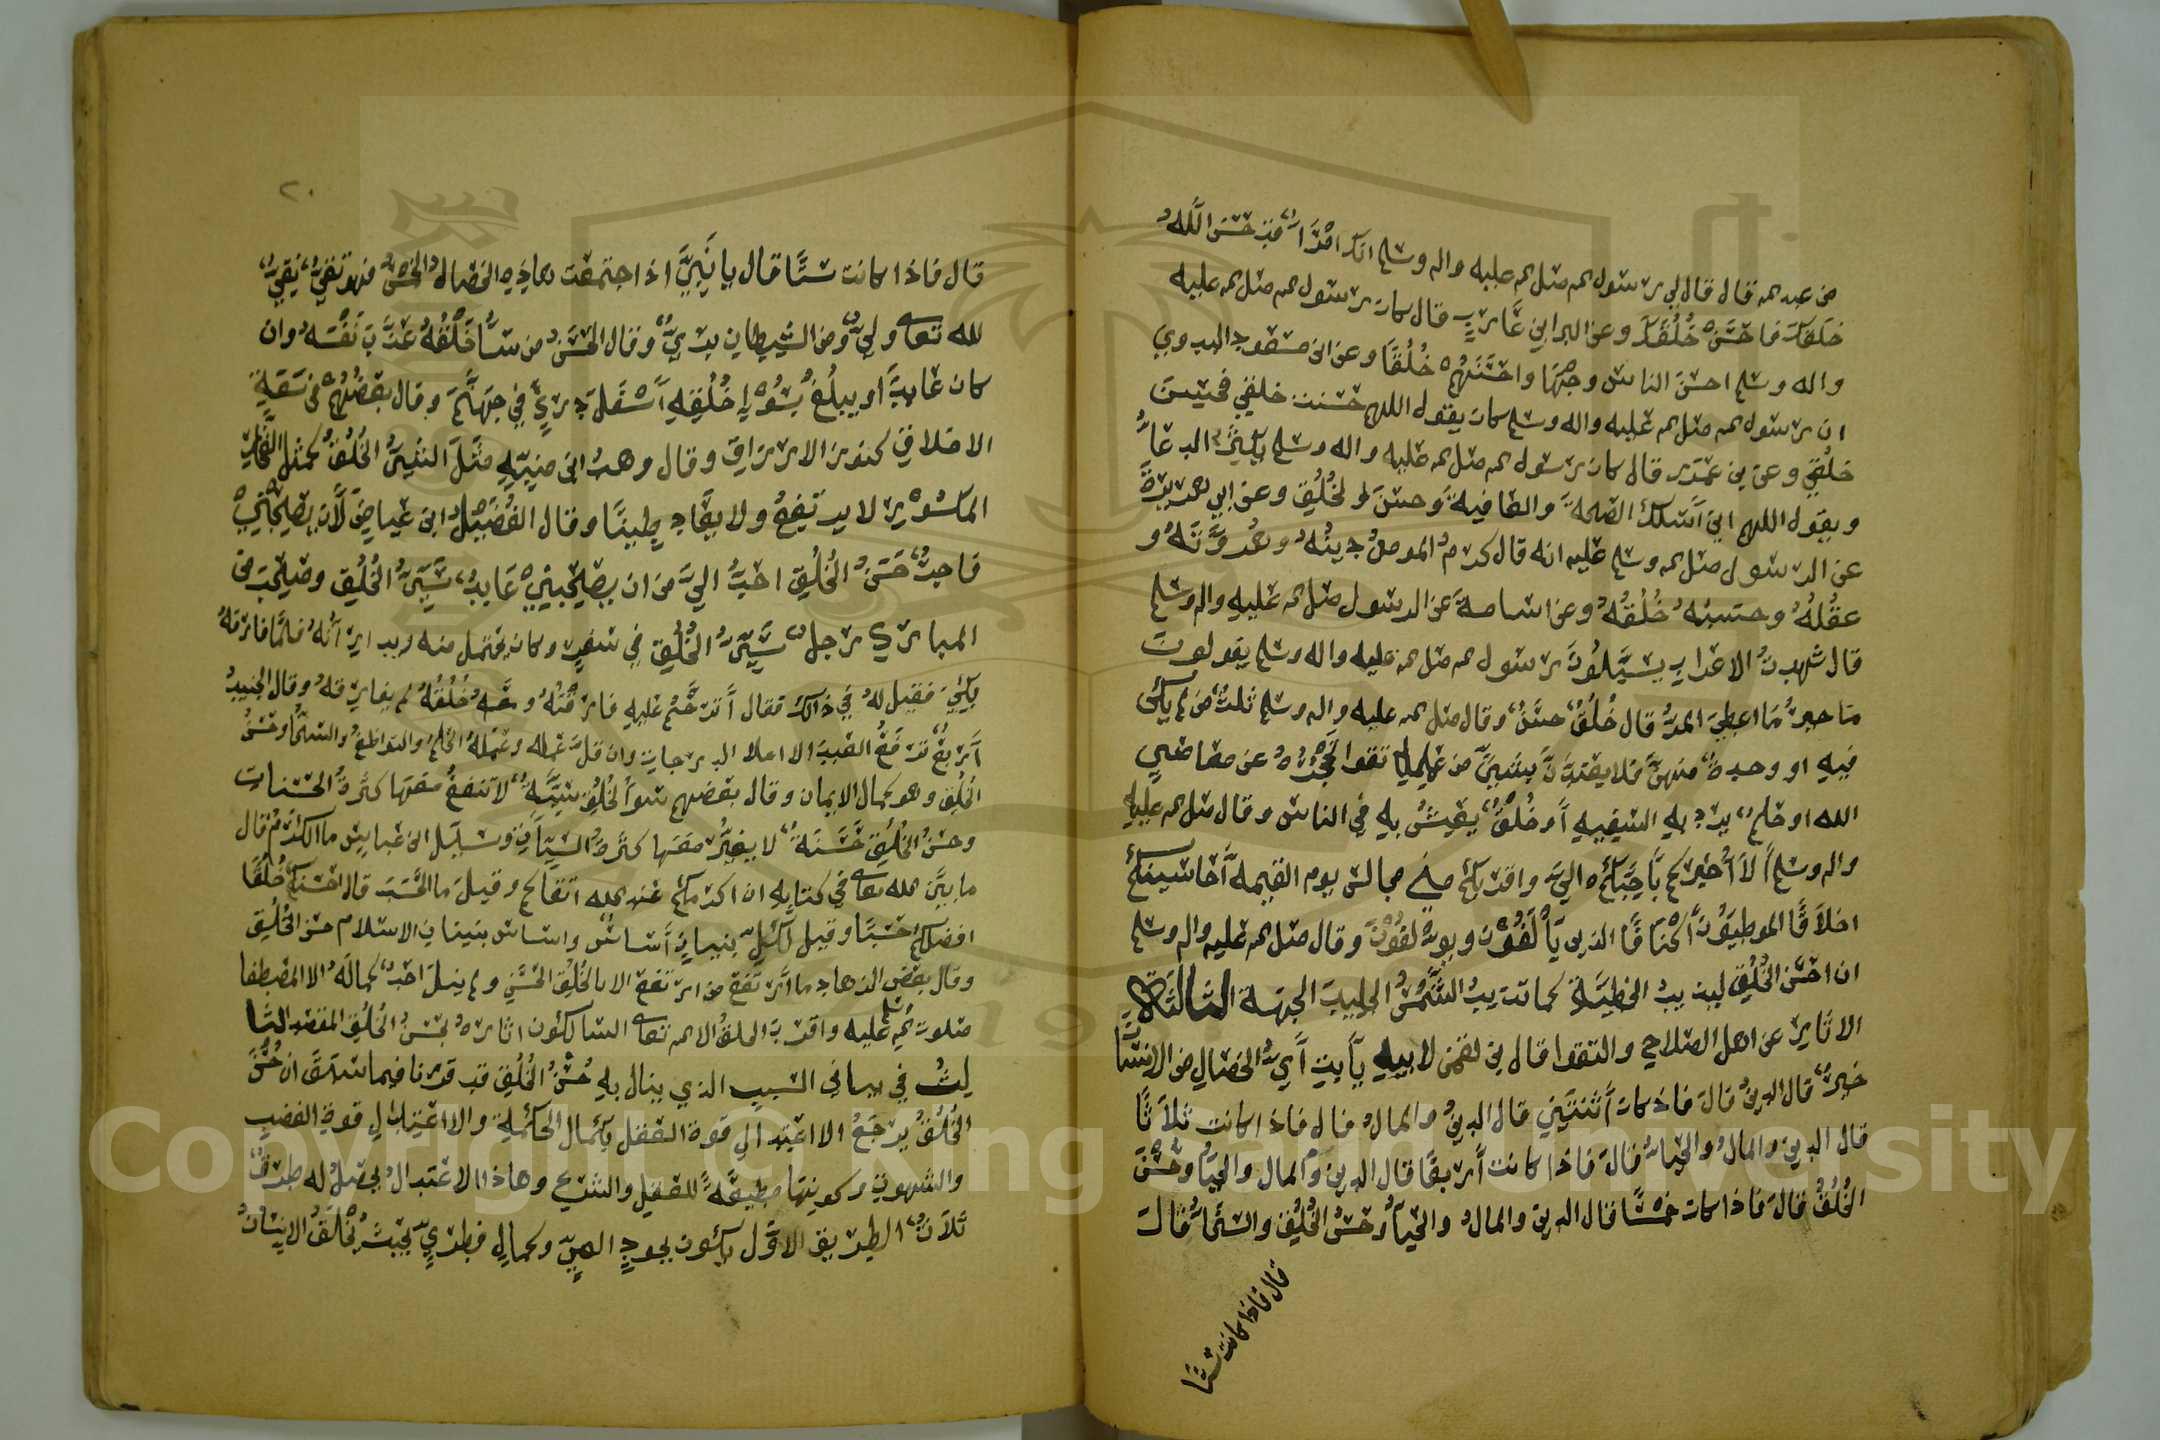 بن عبد الله قال قال لي رسول الله صلى الله عليه واله وسلم انك امرَاٌ قد حَسَّنَ اللَّهُ
خَلقَكَ فاحَسِّنْ خُلُقَكَ وعن البرا بن عَازبٍ قال كان رسول الله صلى الله عليه
واله وسلم احسنَ الناس وجْهًا واحْسَنَهُمْ خُلُقًا وعن ابي مسعود البدوي
ان رسول الله صلى الله عليه واله وسلم كان يقول اللهم حَسَّنت خلقي فحسِّن
خلُقي وعن بن عُمَر قال كان رسول الله صلى الله عليه واله وسلم يكثِرُ الدعاءَ
ويقول اللهم اني اَسئلك الصحةَ والعافيةَ وحسنَ الخُلُقِ وعن ابي هريرةَ
عن الرسول صلى الله وسلم عليه انه قال كرمُ المومنُ دِينُهُ ومُروَّتَهُ و
عقْلُهُ وحَسَبُهُ خُلُقُهُ وعن اسامةَ عن الرسول صلى الله عليه واله وسلم
قال شهدتُ الاعرابِ يسَيَلُونَ رسول الله صلى الله عليه واله وسلم يقولون
مَا خيرُ مَا اعطِيَ المرءُ قال خُلُقٌ حسَنٌ وقال صلى الله عليه واله وسلم ثلثٌ من لم يكن
فيهِ او وحدةٌ منهنَّ فلا يعْتدَّنَّ بشيٍّ من عملِهِ تقوا تحجُزُهُ عن معَاصي
الله او حلمٌ يردُ بهِ السَفِيهِ أو خُلُقٌ يعيْشُ بِهِ في الناس وقال صلى الله عليهِ
واله وسلم ألاَ أُخْبِركم بأَحَبِّكُم اليَّ واقربِكُم مني مجالسَ يوم القيمة أَحَاسِنكُم
اخلاقًا الموطئونَ أَكْنَافًا الذين يَأْلَفُوْن ويولفُوْنَ وقال صلى الله عليه واله وسلم
ان احسَنَ الخُلُقِ ليذيبُ الخطيئة كما تذيبُ الشَّمسُ الجليدَ الجهة الثالثة
الاثار عن اهل الصلاحِ والتقوا قال بن لقمن لابيهِ يَأَبتِ أَيُّ الخصالِ من الانسانِ
خيرٌ قال الدينُ قالَ فاذ كان أَثنتَينِ قال الدينُ والمالُ قال فاذا كانت ثلاَثًا
قال الدين والمالُ والحياءُ قالَ فاذا كانت أَربعًا قال الدين والمال والحيَآءُ وحُسْنَ
الخُلُقُ قالَ فاذا كان خمْسًا قال الدين والمالُ والحيَآءُ وحُسْنُ الخُلُقِ والسَّخاءُ قالَ
قال فاذا كانت سِتًّا
٢٠
قال فاذا كانت سِتًّا قال يا بُنَيَّ اذا اجتمعت هاذهِ الخصالُ الخمْسُ فهو تقيٌّ نقيٌّ
لله تعالى وليٌّ ومن الشيطان بَرِيٌّ وقال الحسَنُ من سَأَ خُلُقُهُ عذَّبَ نَفْسَهُ وان
كان عَابِدًا ويبلُغُ بسُوْإِ خُلُقِهِ أَسْفلَ دركٍ في جهنَّمَ وقال بعْضُهُمْ في سَعَةِ
الاخلاقِ كنوز الارزاقِ وقال وهبُ ابن منبِّهٍ مثَلَ السَّيئُ الخُلُقُ كمثل الفَخَّارِ
المكسُوْرِ لا يرتقِعُ ولا يعَادُ طِينًا وقال الفُضَيْلُ ابن عياضٍ لَأَن يصْحَبَنيْ
فاجرٌ حَسَنُ الخُلُقِ احبُّ اليَّ من ان يصْحَبَنِيْ عَابدٌ سَيِّئُ الخُلُقِ وصَحِبَ بن
المبارَكِ رجلٌ سَيِّئُ الخُلُقِ في سَفرٍ وكان يحْتمل منه ويداريَ أَنهُ فلمَّا فارقهُ
بكَى فقيل لهُ في ذالك فقال أَترحَّمُ عليهِ فارقْتُهُ ومَعَهُ خُلُقُهُ لم يفارقهُ وقال الجنيدُ
أَربعٌ ترفعُ العبدَ الا اعلا الدرجات وان قلَّ عمله وعلمُهُ الحلمُ والتواضعُ والسخَاءُ وحُسْنُ
الخُلُقِ وهو كمال الايمان وقال بعْضهم سُوْأُ الخُلُقِ سيِّئَةٌ لا تنفعُ معَهَا كثرةُ الحسَنات
وحسْنُ الخُلُقِ حَسَنَةٌ لا يضرُّ معَها كثرةُ السيِّئَاتِ وسئيلَ ابن عباسٍ ما الكرَمُ قال
ما بيَّن الله تعالى في كتابهِ ان اكرمكُم عند الله اتقاكم وقيلَ ما الحسَبَ قال احْسَنكُم خُلُقًا
افضلكُم حَسَبًا وقيل لكُلِّ بنيانٍ أَسَاسٌ واسَاسَ بنيانِ الاسلام حسْن الخُلُقِ
وقال بعْض الزهاد ما ارْتفعَ من ارتفعَ الا بالخُلُقِ الحَسَنِ ولم ينلَ احدٌ كمالَهُ الا المصْطفا
صلوت الله عليه واقربَ الخلقُ الا الله تعالى السالكون اثارهُ بحُسْنُ الخُلُقِ المقصد الثا
لثُ في بيان السببِ الذي ينال بهِ حُسْنُ الخُلُقِ قد قدمنا فيما سَبَقَ ان حُسْنَ
الخُلُقُ يرجَعُ الا اعتدالِ قوة العَقلِ بِكُمال الحكمَةِ والا اعتدالِ قوةِ الغضبِ
والشهوةِ وكونهَا مطيعَةً للعَقلِ والشرع وهاذا الاعتدالُ يحصلُ له طرقٌ
ثلاَثٌ الطريق الاَوَّل يكُون بجودٍ الهيٍّ وكمالٍ فطريٍّ بحيثُ يُخْلَقُ الانسانُ
Copyright © King Saud University